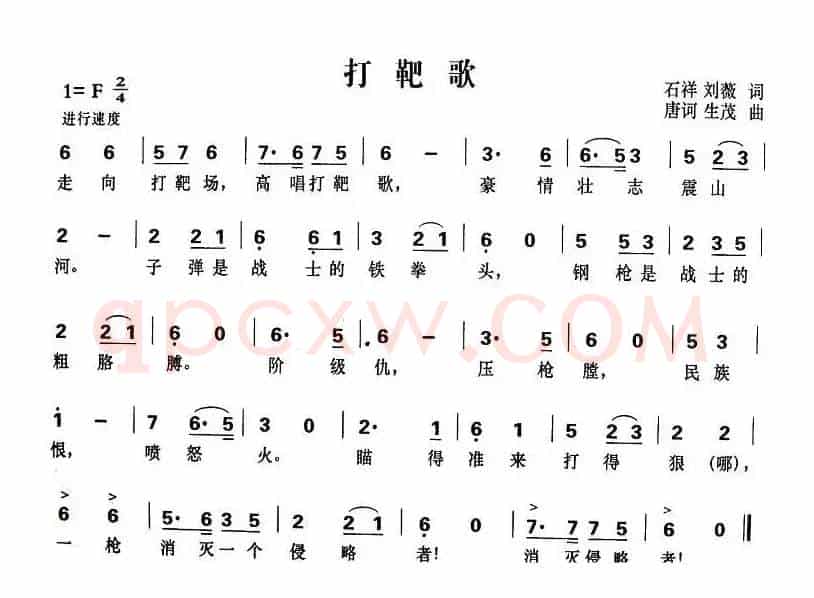 打靶歌
1= F 2/4
石祥 刘薇 词
进行速度
唐诃 生茂 曲
6 6 | 5 7 6 | 7· 6 7 5 | 6 － | 3· 6 | 6· 5 3 | 5 2 3 |
走向 打靶场, 高唱打靶 歌, 豪情 壮志 震山
2 － | 2 2 1 | 6 6 1 | 3 2 1 | 6 0 | 5 5 3 | 2 3 5 |
河。 子弹是 战士的 铁拳 头, 钢枪是 战士的
2 2 1 | 6 0 | 6· 5 | 6 － | 3· 5 | 6 0 | 5 3 |
粗胳 膊。 阶级 仇, 压枪 膛, 民族
1 － | 7 6· 5 | 3 0 | 2· 1 | 6 1 | 5 2 3 | 2 2 |
恨, 喷怒 火。 瞄得 准来 打得 狠(哪),
6 6 | 5· 6 3 5 | 2 2 1 | 6 0 | 7· 7 5 5 | 6 0 ‖
一枪 消灭一个 侵略 者! 消灭侵略 者!
qpcxw.COM